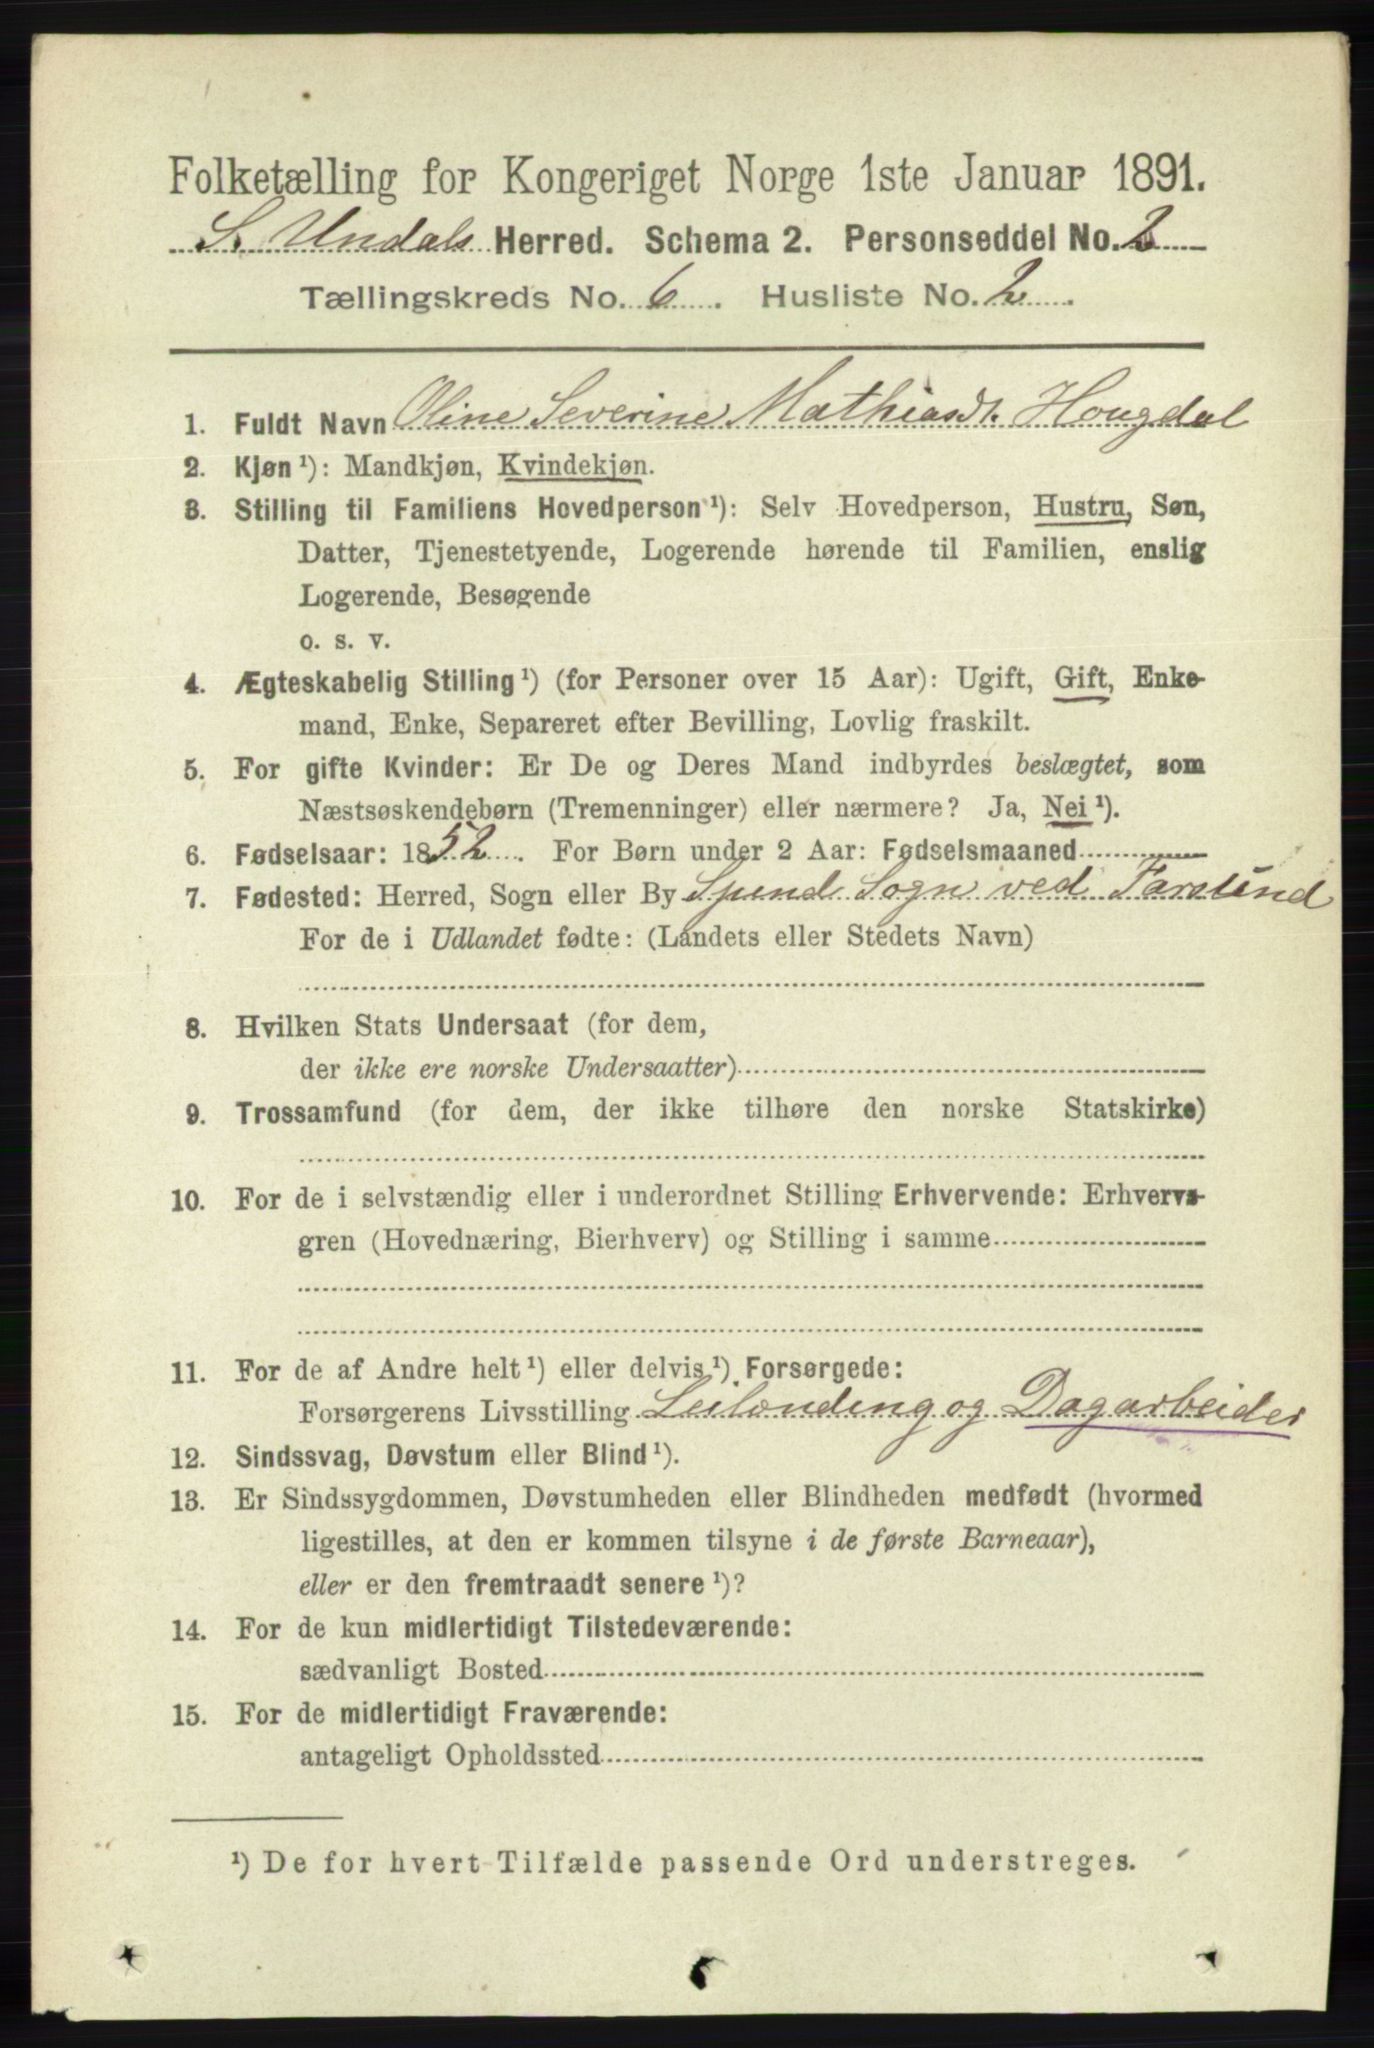 Folketælling for Kongeriget Norge 1ste Januar 1891.
S. Undals Herred. Schema 2. Personseddel No. 2
Tællingskreds No. 6. Husliste No. 2.
1. Fuldt Navn Oline Severine Mathiasdt. Hougdal
2. Kjøn ¹): Mandkjøn, Kvindekjøn.
3. Stilling til Familiens Hovedperson ¹): Selv Hovedperson, Hustru, Søn,
Datter, Tjenestetyende, Logerende hørende til Familien, enslig
Logerende, Besøgende
o. s. v.
4. Ægteskabelig Stilling ¹) (for Personer over 15 Aar): Ugift, Gift, Enke-
mand, Enke, Separeret efter Bevilling, Lovlig fraskilt.
5. For gifte Kvinder: Er De og Deres Mand indbyrdes beslægtet, som
Næstsøskendebørn (Tremenninger) eller nærmere? Ja, Nei ¹).
6. Fødselsaar: 1852. For Børn under 2 Aar: Fødselsmaaned
7. Fødested: Herred, Sogn eller By Spend Sogn ved Farsund
For de i Udlandet fødte: (Landets eller Stedets Navn)
8. Hvilken Stats Undersaat (for dem,
der ikke ere norske Undersaatter)
9. Trossamfund (for dem, der ikke tilhøre den norske Statskirke)
10. For de i selvstændig eller i underordnet Stilling Erhvervende: Erhvervs-
gren (Hovednæring, Bierhverv) og Stilling i samme
11. For de af Andre helt ¹) eller delvis ¹) Forsørgede:
Forsørgerens Livsstilling Leilænding og Dagarbeider
12. Sindssvag, Døvstum eller Blind ¹).
13. Er Sindssygdommen, Døvstumheden eller Blindheden medfødt (hvormed
ligestilles, at den er kommen tilsyne i de første Barneaar),
eller er den fremtraadt senere ¹)?
14. For de kun midlertidigt Tilstedeværende:
sædvanligt Bosted
15. For de midlertidigt Fraværende:
antageligt Opholdssted
¹) De for hvert Tilfælde passende Ord understreges.